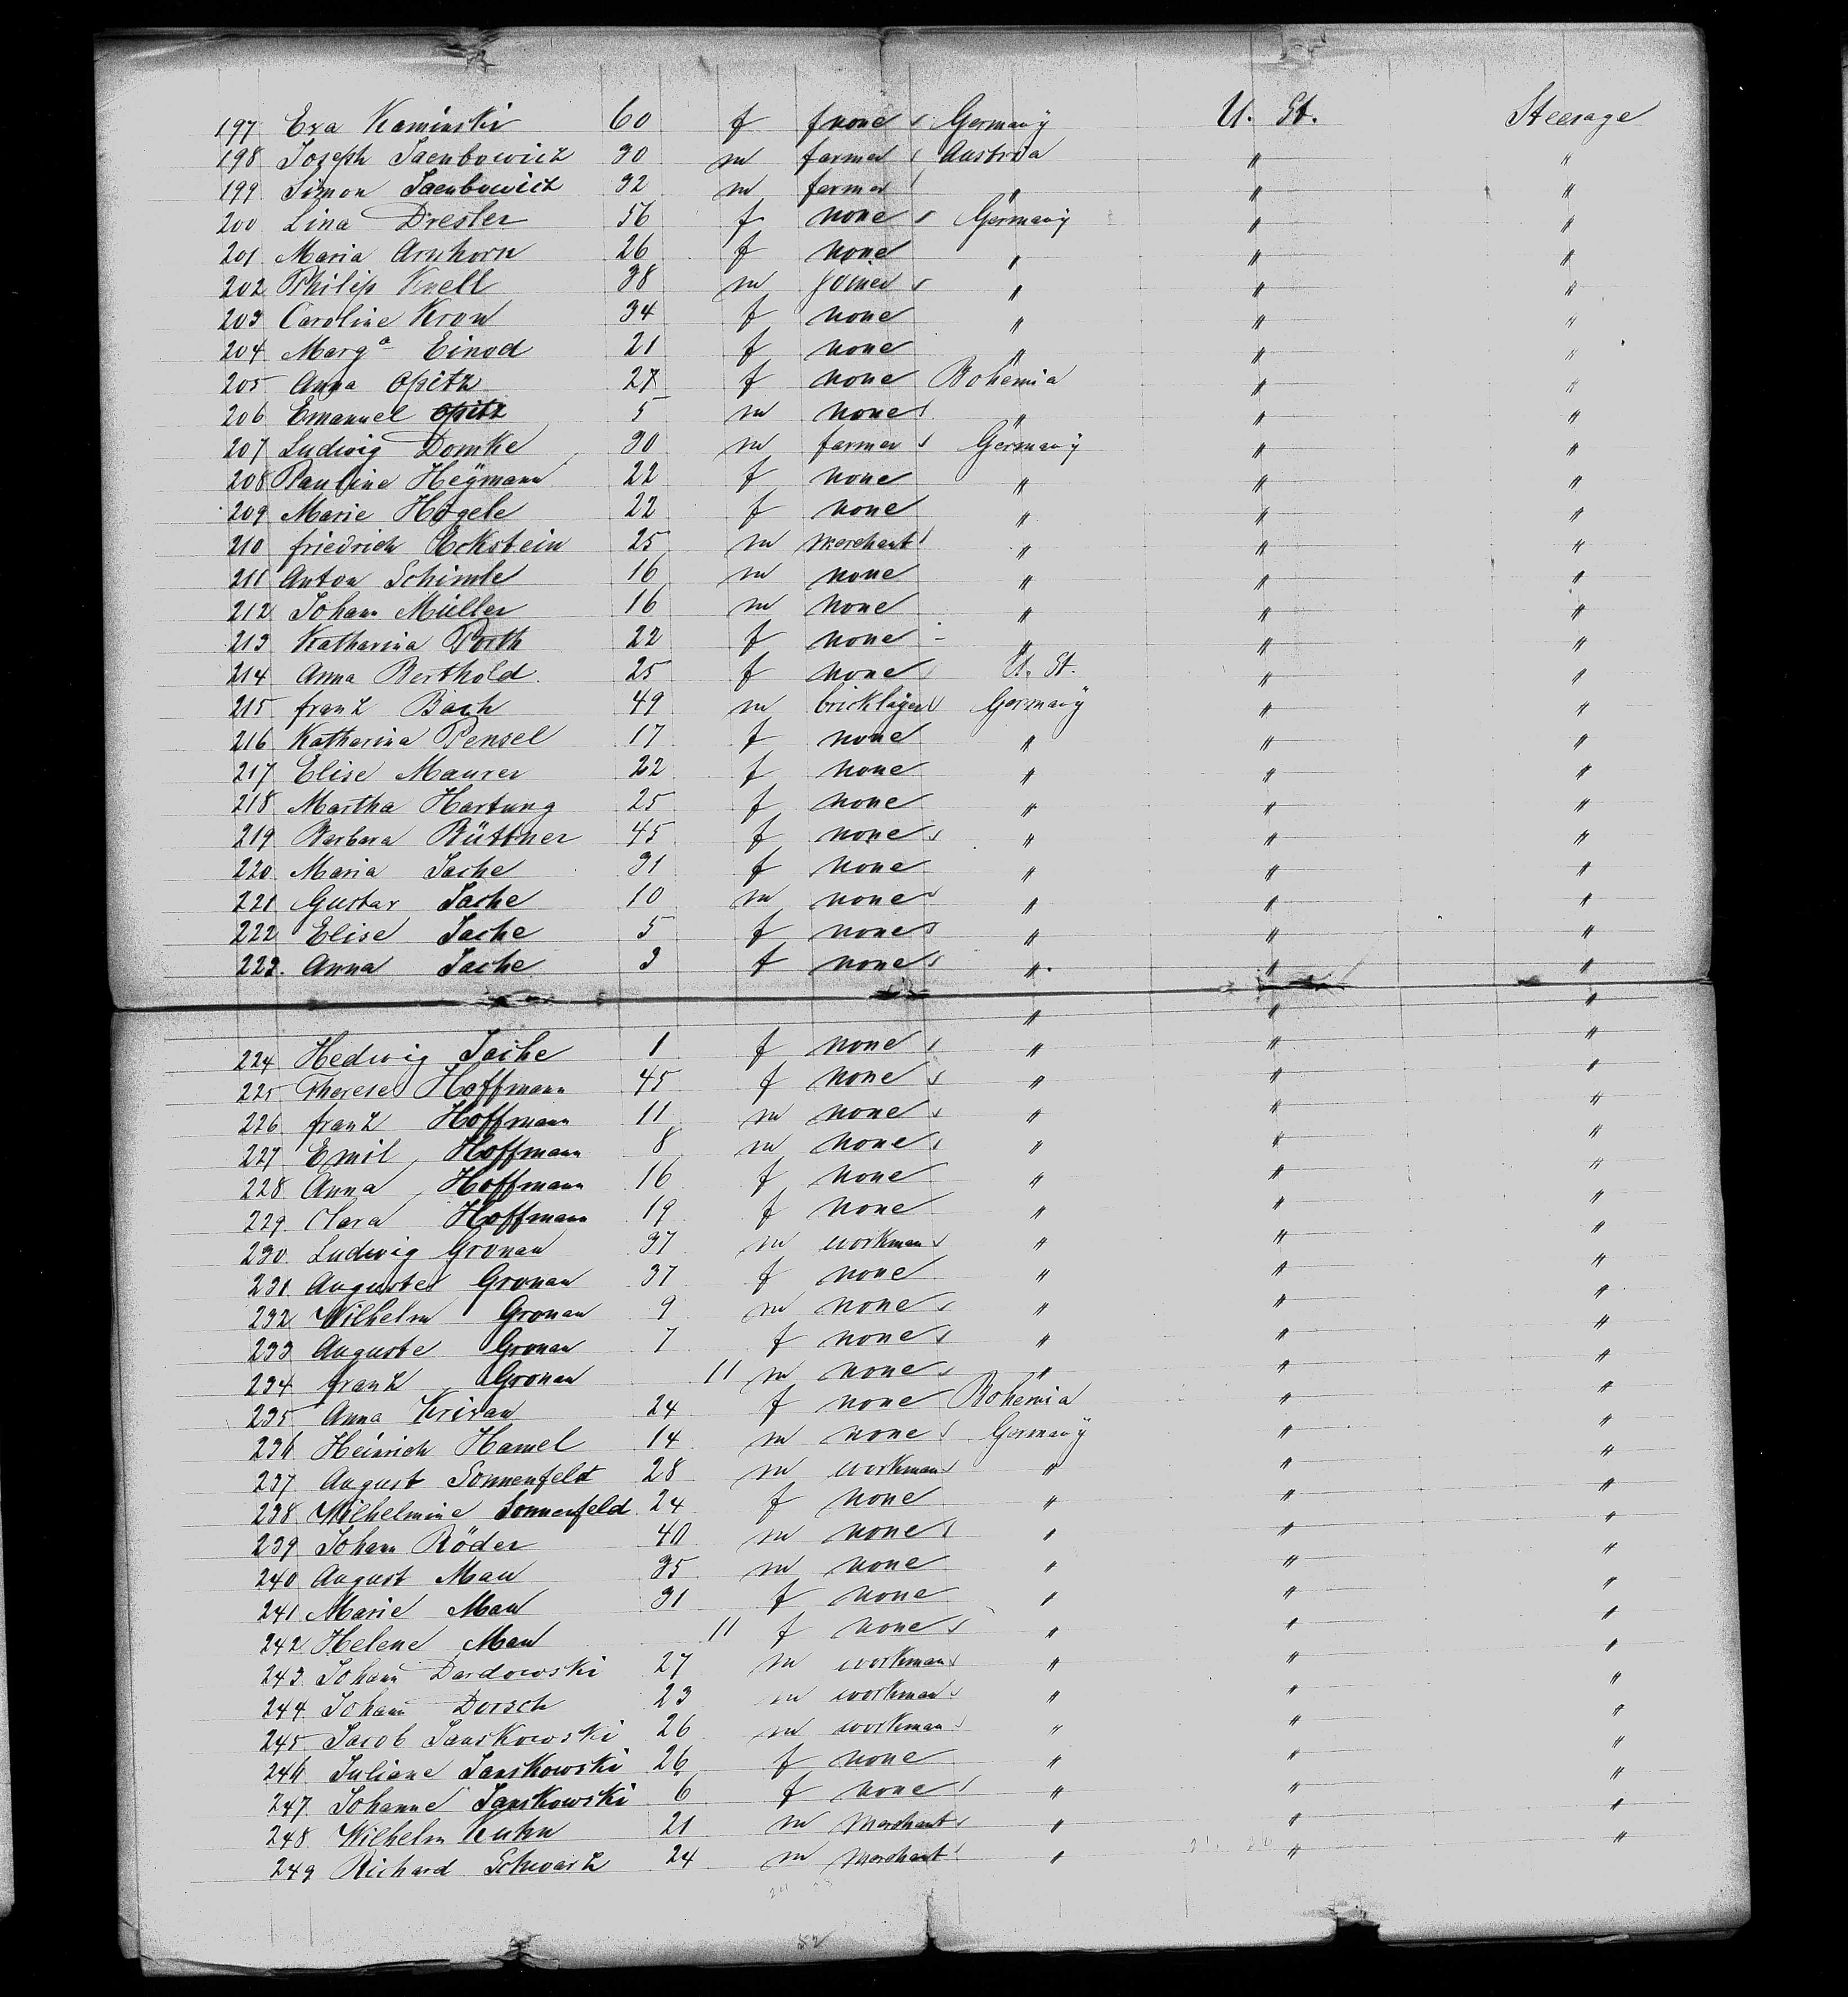 197 Eva Kaminski 60 f none Germany U. St. Steerage
198 Joseph Jacubowicz 30 m farmer Austria " "
199 Simon Jacubowicz 32 m farmer " " "
200 Lina Dresler 56 f none Germany " "
201 Maria Arnhorn 26 f none " " "
202 Philip Knell 38 m joiner " " "
203 Caroline Kron 34 f none " " "
204 Marg a Einod 21 f none " " "
205 Anna Opitz 27 f none Bohemia " "
206 Emanuel Opitz 5 m none " " "
207 Ludwig Domke 30 m farmer Germany " "
208 Pauline Heÿmann 22 f none " " "
209 Marie Hogele 22 f none " " "
210 friedrich Eckstein 25 m merchant " " "
211 Anton Schimle 16 m none " " "
212 Johann Müller 16 m none " " "
213 Katharina Porth 22 f none " " "
214 Anna Berthold 25 f none U. St. " "
215 franz Bach 49 m bricklayer Germany " "
216 Katharina Pensel 17 f none " " "
217 Elise Maurer 22 f none " " "
218 Martha Hartung 25 f none " " "
219 Barbara Büttner 45 f none " " "
220 Maria Jache 31 f none " " "
221 Gustav Jache 10 m none " " "
222 Elise Jache 5 f none " " "
223. Anna Jache 3 f none " " "
" " "
224 Hedwig Jache 1 f none " " "
225 Therese Hoffmann 45 f none " " "
226 franz Hoffmann 11 m none " " "
227 Emil Hoffmann 8 m none " " "
228 Anna Hoffmann 16 f none " " "
229 Clara Hoffmann 19 f none " " "
230 Ludwig Gronau 37 m workman " " "
231 Auguste Gronau 37 f none " " "
232 Wilhelm Gronau 9 m none " " "
233 Auguste Gronau 7 f none " " "
234 franz Gronau 11 m none " " "
235 Anna Krivan 24 f none Bohemia " "
236 Heinrich Hamel 14 m none Germany " "
237 August Sonnenfeld 28 m workman " " "
238 Wilhelmine Sonnenfeld 24 f none " " "
239 Johann Röder 40 m none " " "
240 August Mau 35 m none " " "
241 Marie Mau 31 f none " " "
242 Helene Mau 11 f none " " "
243 Johann Dardowski 27 m workman " " "
244 Johann Dorsch 23 m workman " " "
245 Jacob Janskowski 26 m workman " " "
246 Juliane Janskowski 26 f none " " "
247 Johanne Janskowski 6 f none " " "
248 Wilhelm Kuhn 21 m merchant " " "
249 Richard Schwarz 24 m merchant " " "
52